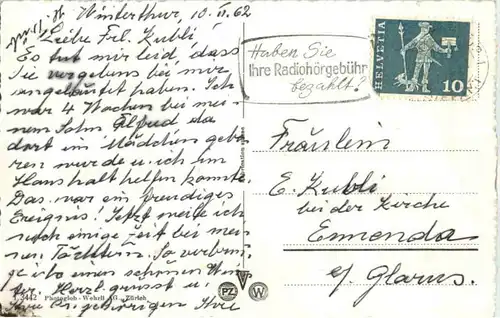 Winterthur, 10. II. 62
Liebe Frl. Kubli,
Es tut mir leid, dass
Sie vergebens bei mir
angeläutet haben. Ich
war 4 Wochen bei mei-
nem Sohn Alfred da
dort ein Mädchen gebo-
ren wurde u. ich im
Haushalt helfen konnte.
Das war ein freudiges
Ereignis! Jetzt weile ich
noch einige Zeit bei mei-
nen Töchtern. So verbrin-
ge ich einen schönen Win-
ter. Herzl. grüsst u.
Ihre
3442 Photoglob-Wehrli AG., Zürich
PZ
W
Haben Sie
Ihre Radiohörgebühr
bezahlt?
HELVETIA
10
Fräulein
E. Kubli
bei der Kirche
Ennenda
b/ Glarus.